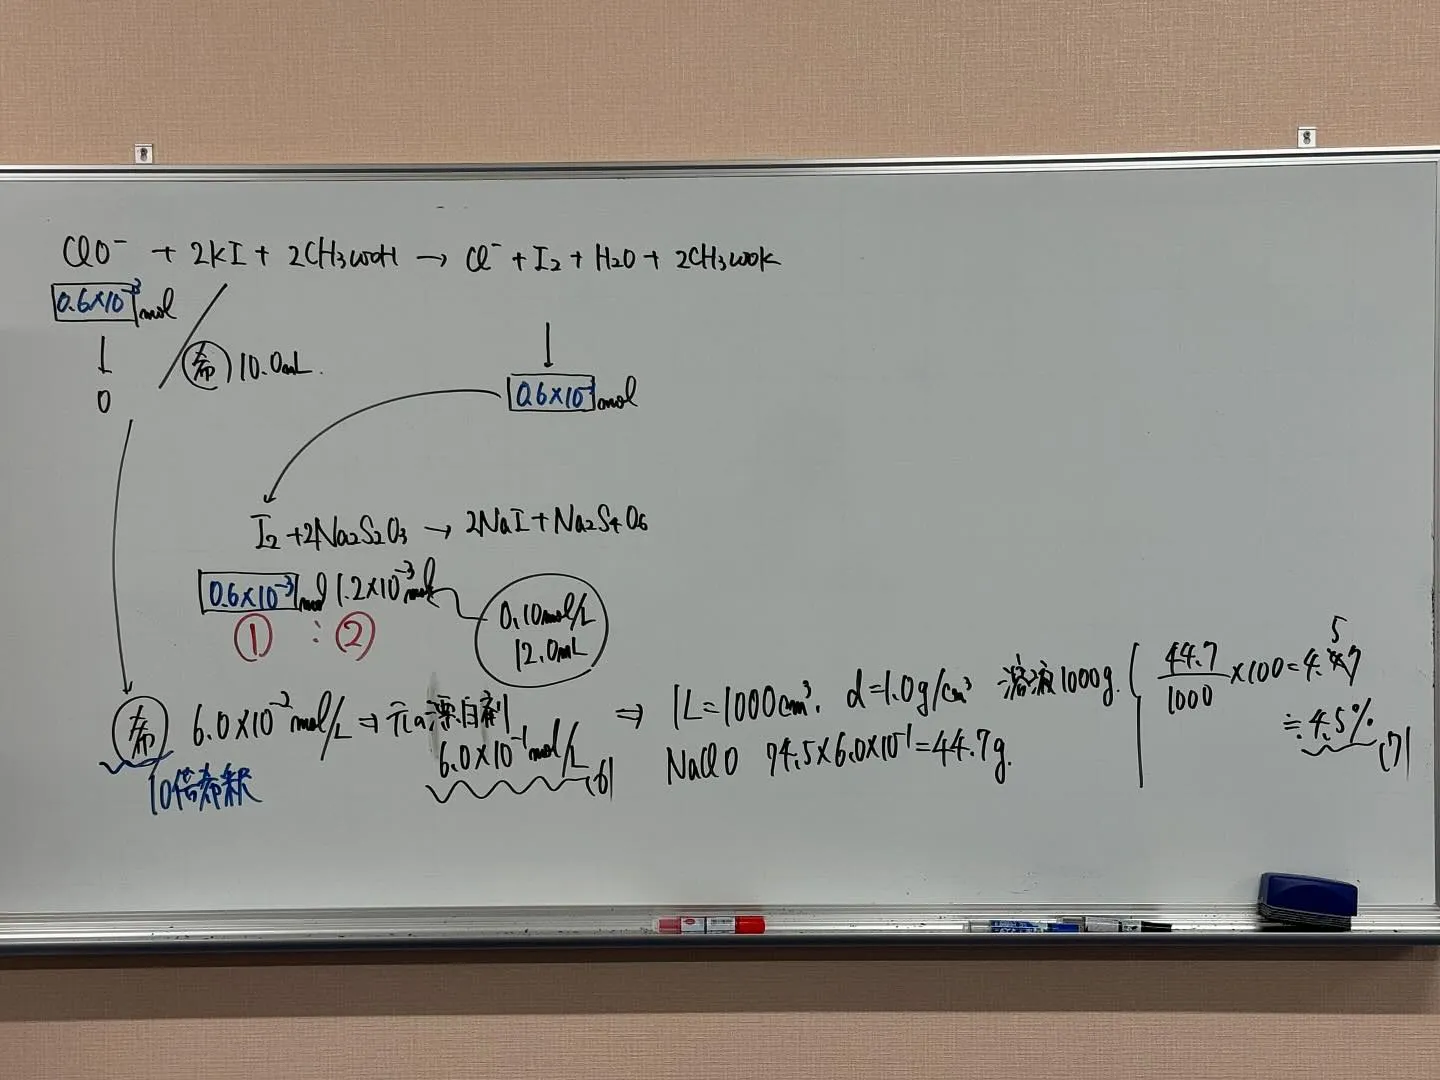 ClO⁻ + 2KI + 2CH3COOH → Cl⁻ + I2 + H2O + 2CH3COOK
0.6×10⁻³ mol
↓
0
希 10.0mL.
↓
0.6×10⁻³ mol
I2 + 2Na2S2O3 → 2NaI + Na2S4O6
0.6×10⁻³ mol 1.2×10⁻³ mol
① : ②
0.10mol/L
12.0mL
希 6.0×10⁻² mol/L ⇒ 元の漂白剤
6.0×10⁻¹ mol/L (6)
10倍希釈
⇒ 1L=1000cm³. d=1.0g/cm³ 溶液1000g.
NaClO 74.5×6.0×10⁻¹=44.7g.
44.7/1000 ×100=4.57
≒4.5% (7)